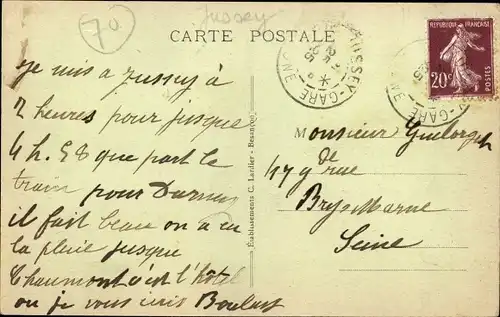 70
Jussey
CARTE POSTALE
JUSSEY-GARE
RÉPUBLIQUE FRANÇAISE
20c
POSTES
Je suis a Jussey à
2 heures pour jusque
4 h. 58 que part le
train pour Darney
il fait beau on a eu
la pluie jusque
Chaumont c'est l'hôtel
ou je vous écris Boulast
Etablissements C. Lardier - Besançon
Monsieur Guelorget
47 9 rue de
Bry s Marne
Seine